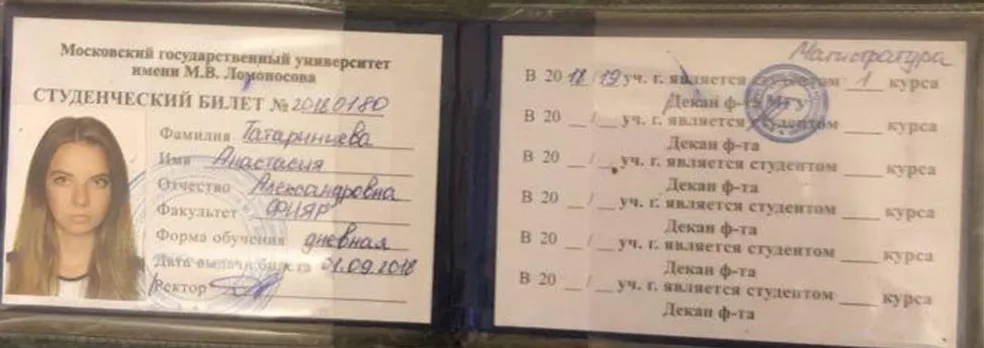 Московский государственный университет
имени М.В. Ломоносова
СТУДЕНЧЕСКИЙ БИЛЕТ № 20180180
Фамилия Татаринцева
Имя Анастасия
Отчество Александровна
Факультет ФИЯР
Форма обучения дневная
Дата выдачи билета 01.09.2018
Ректор
Магистратура
В 2018/19 уч. г. является студентом 1 курса
Декан ф-та МГУ
В 20 __/__ уч. г. является студентом ___ курса
Декан ф-та
В 20 __/__ уч. г. является студентом ___ курса
Декан ф-та
В 20 __/__ уч. г. является студентом ___ курса
Декан ф-та
В 20 __/__ уч. г. является студентом ___ курса
Декан ф-та
В 20 __/__ уч. г. является студентом ___ курса
Декан ф-та